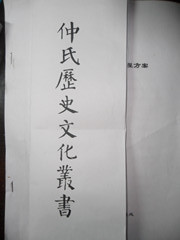 仲氏歷史文化叢書
方案